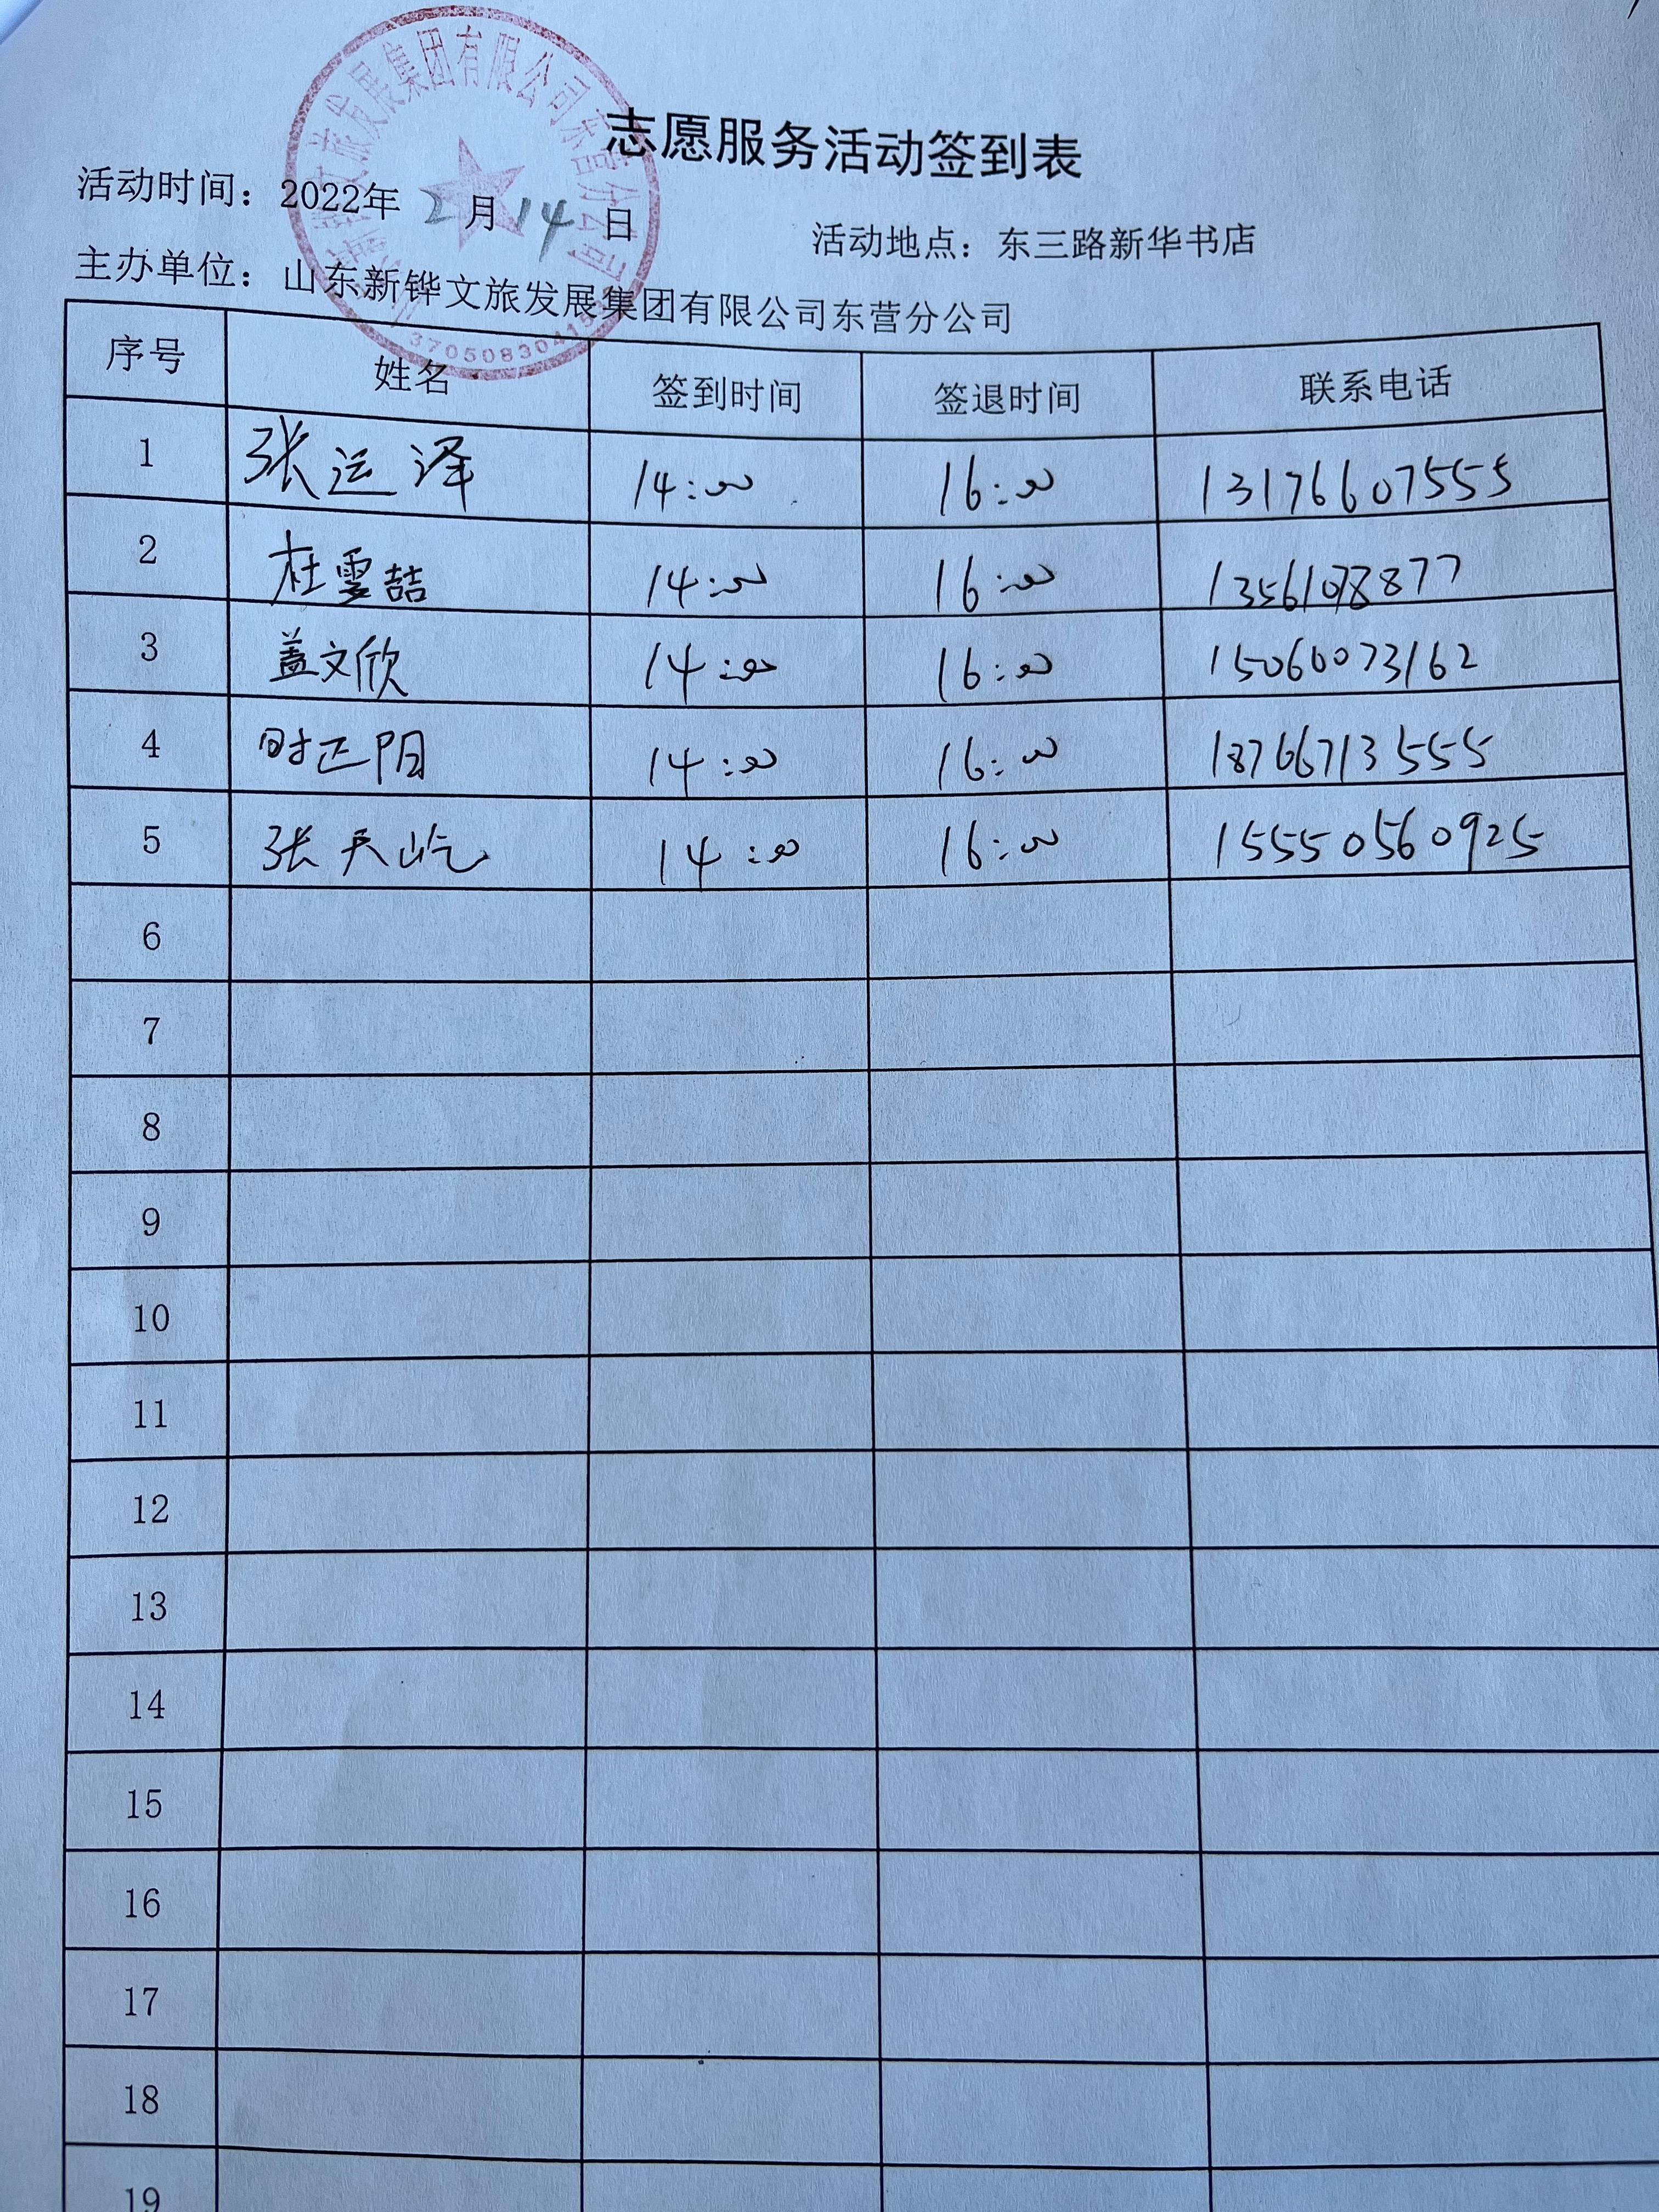 志愿服务活动签到表
活动时间：2022年 2 月 14 日 活动地点：东三路新华书店
主办单位：山东新铧文旅发展集团有限公司东营分公司
序号 姓名 签到时间 签退时间 联系电话
1 张运泽 14:00 16:00 13176607555
2 杜雯喆 14:00 16:00
3 盖文欣 14:00 16:00 15060073162
4 时正阳 14:00 16:00 18766713555
5 张天屹 14:00 16:00 15550560925
6
7
8
9
10
11
12
13
14
15
16
17
18
19